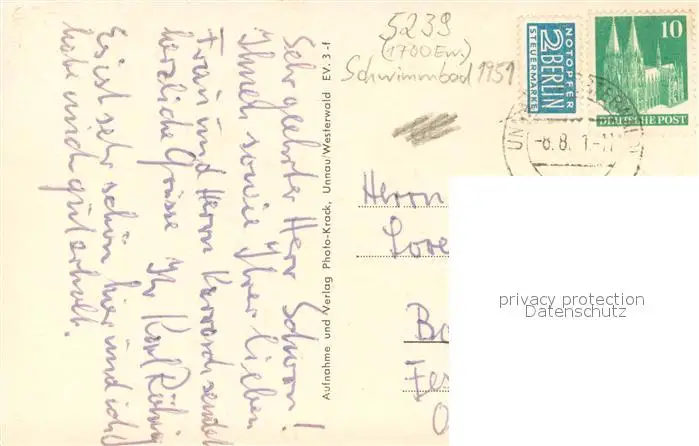 Sehr geehrter Herr Schorn!
Ihnen sowie Ihrer lieben
Frau und Herrn sendet
herzliche Grüsse Ihr Karl
Es ist sehr schön hier und ich
habe mich gut erholt.
Aufnahme und Verlag Photo-Krack, Unnau/Westerwald EV. 3-f
5239
(1700 Em.)
Schwimmbad 1951
NOTOPFER
2 BERLIN
STEUERMARKE
10
DEUTSCHE POST
-8.8. 1.-11
Herrn
Lore
Ba
Fes
O
privacy protection
Datenschutz